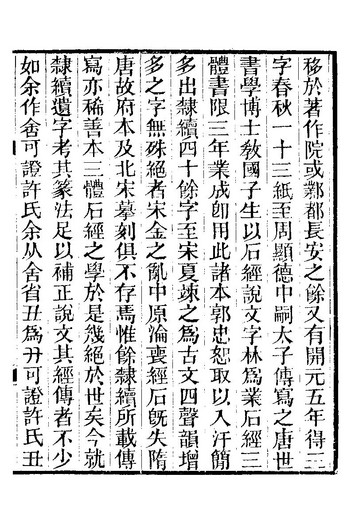 移於著作院或鄴都長安之餘又有開元五年得三
字春秋一十三紙至周顯德中嗣太子傳寫之唐世
書學博士敎國子生以石經說文字林爲業石經三
體書限三年業成卽用此諸本郭忠恕取以入汗簡
多出隸續四十餘字至宋夏竦之爲古文四聲韻增
多之字無殊絕者宋金之亂中原淪喪經石旣失隋
唐故府本及北宋摹刻俱不存焉惟餘隸續所載傳
寫亦稀善本三體石經之學於是幾絕於世矣今就
隸續遺字考其篆法足以補正說文其經傳者不少
如余作舍可證許氏余从舍省丑爲㕚可證許氏丑